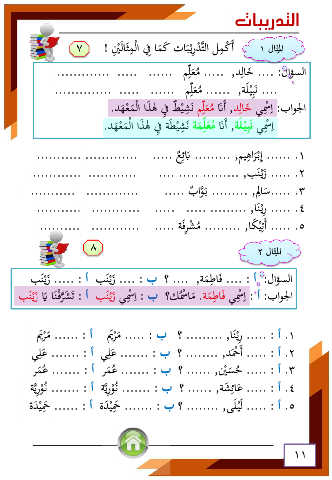 التدريبات
المثال ١ أَكْمِلِ التَّدْرِيْبَاتِ كَمَا فِي الْمِثَالَيْنِ ! ٧
السؤال: .... خَالِد, ..... مُعَلِّم ...... ...... ......
.... نَبِيْلَة, ...... مُعَلِّم ...... ...... ......
الجواب: اِسْمِي خَالِد, أَنَا مُعَلِّم نَشِيْطٌ فِي هٰذَا الْمَعْهَد.
اِسْمِي نَبِيْلَة, أَنَا مُعَلِّمَة نَشِيْطَة فِي هٰذَا الْمَعْهَد.
١. ...... إِبْرَاهِيم, .......... بَائِعٌ ..... ............ ............
٢. ...... زَيْنَب, .......... .......... ............ ............
٣. ..... سَالِم, ......... بَوَّابٌ ...... ............ ............
٤. ...... رِيْنَا, .......... .......... ............ ............
٥. ...... أَتِيْكَا, ......... مُشْرِفَة ..... ............ ............
المثال ٢ ٨
السؤال: أ : .... فَاطِمَة, .... ؟ ب : .... زَيْنَب أ : .... زَيْنَب
الجواب: أ : اِسْمِي فَاطِمَة. مَاسْمُك؟ ب : اِسْمِي زَيْنَب أ : تَشَرَّفْنَا يَا زَيْنَب
١. أ : ..... رِيْنَا, ....... ؟ ب : ...... مَرْيَم أ : ...... مَرْيَم
٢. أ : ..... أَحْمَد, ....... ؟ ب : ...... عَلِي أ : ...... عَلِي
٣. أ : ..... حُسَيْن, ...... ؟ ب : ...... عُمَر أ : ...... عُمَر
٤. أ : ..... عَائِشَة, ...... ؟ ب : ...... نُوْرِيَّة أ : ...... نُوْرِيَّة
٥. أ : ..... لَيْلَى, ....... ؟ ب : ...... حَمِيْدَة أ : ...... حَمِيْدَة
١١